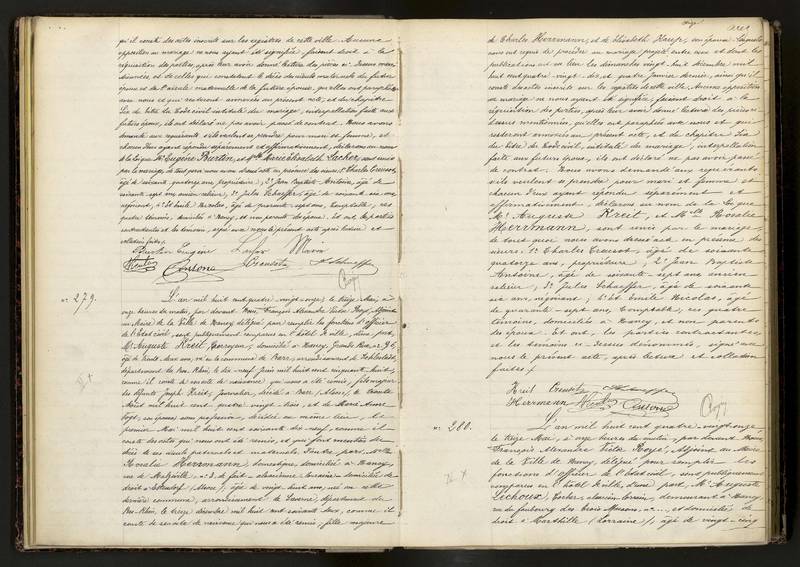 qu'il conste des actes inscrits sur les registres de cette ville. Aucune
opposition au mariage ne nous ayant été signifiée, faisant droit à la
réquisition des parties, après leur avoir donné lecture des pièces ci-dessus men-
avec nous et qui resteront annexées au présent acte, et du chapitre
Six du titre du Code civil intitulé du mariage, interpellation faite aux
futurs époux, ils ont déclaré ne pas avoir passé de contrat. Nous avons
demandé aux requérants s'ils veulent se prendre pour mari et femme, et
chacun d'eux ayant répondu séparément et affirmativement, déclarons au nom
de la loi que Mr Eugène Burtin et Mlle Marie Elisabeth Lacher, sont unis
par le mariage, de tout quoi nous avons dressé acte en présence des sieurs 1° Charles Creusot,
âgé de soixante quatorze ans, propriétaire; 2° Jean Baptiste Antoine, âgé de
soixante sept ans, ancien relieur; 3° Jules Schaeffer, âgé de soixante six ans,
négociant; 4° et Emile Nicolas, âgé de quarante-sept ans, comptable, ces
quatre témoins, domiciliés à Nancy, et non parents des époux. Et ont les parties
contractantes et les témoins, signé avec nous le présent acte, après lecture et
collation faites.
Burtin Eugène
Creusot
N° 279.
L'an mil huit cent quatre-vingt-onze, le treize Mai, à
onze heures du matin, par devant Nous, François Alexandre Victor Royé, Adjoint
au Maire de la Ville de Nancy délégué pour remplir les fonctions d'officier
de l'Etat civil, sont publiquement comparus en l'hôtel de ville, d'une part,
Mr Auguste Kreit, domicilié à Nancy, Grande Rue, n° 96,
âgé de trente deux ans, né en la commune de Barr, arrondissement de Schlestadt,
département du Bas-Rhin, le dix-neuf juin mil huit cent cinquante-huit,
comme il conste de son acte de naissance qui nous a été remis, fils majeur
des défunts Joseph Kreit, journalier, décédé à Barr (Alsace), le trente
Août mil huit cent quatre vingt-trois, et de Marie Anne
Vogt, son épouse sans profession, décédée au même lieu, le
premier Mai mil huit cent soixante dix neuf, comme il
conste des actes qui nous ont été remis, et qui font mention des
décès de ses aïeuls paternels et maternels. D'autre part, Mlle
Rosalie Herrmann, domestique, domiciliée à Nancy,
rue de Malzéville, n° 3, de fait et
droit à (Alsace), âgée de vingt-huit ans, née en cette
dernière commune, arrondissement de Saverne, département du
Bas-Rhin, le treize décembre mil huit cent soixante deux, comme il
conste de son acte de naissance qui nous a été remis, fille majeure
de Charles Herrmann, et de Elisabeth Kauff, son épouse. Lesquels
nous ont requis de procéder au mariage projeté entre eux et dont les
publications ont eu lieu les dimanches
conste des actes inscrits sur les registres de cette ville. Aucune opposition
au mariage ne nous ayant été signifiée, faisant droit à la
réquisition des parties, après leur avoir donné lecture des pièces ci-
dessus mentionnées, qu'elles ont paraphées avec nous et qui
resteront annexées au présent acte, et du chapitre Six
du titre du Code civil, intitulé du mariage, interpellation
faite aux futurs époux, ils ont déclaré ne pas avoir passé
de contrat. Nous avons demandé aux requérants
s'ils veulent se prendre pour mari et femme et
chacun d'eux ayant répondu séparément et
affirmativement, déclarons au nom de la loi que
Mr Auguste Kreit, et Mlle Rosalie
Herrmann, sont unis par le mariage,
de tout quoi nous avons dressé acte en présence des
sieurs 1° Charles Creusot, âgé de soixante
quatorze ans, propriétaire; 2° Jean Baptiste
Antoine, âgé de soixante-sept ans ancien
relieur; 3° Jules Schaeffer, âgé de soixante
six ans, négociant; 4° et Emile Nicolas, âgé
de quarante-sept ans, comptable, ces quatre
témoins, domiciliés à Nancy, et non parents
des époux. Et ont, les parties contractantes
et les témoins ci-dessus dénommés, signé avec
nous le présent acte, après lecture et collation
faites.
Kreit Creusot
Herrmann
N° 280.
L'an mil huit cent quatre vingt-onze,
le treize Mai, à onze heures du matin, par devant Nous,
François Alexandre Victor Royé, Adjoint au Maire
de la Ville de Nancy, délégué pour remplir les
fonctions d'officier de l'Etat civil, sont publiquement
comparus en l'hôtel de ville, d'une part, Mr Auguste
Lechoux, demeurant à Nancy,
rue du faubourg des Trois Maisons, n° et domicilié de
droit à Marthille (Lorraine), âgé de vingt-cinq